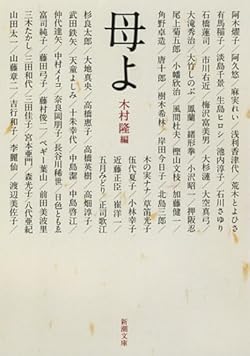 母よ
木村隆 編
阿木燿子／阿久悠／麻実れい／浅利香津代／荒木とよひさ
有馬稲子／淡島千景／生島ヒロシ／池内淳子／石川さゆり
石橋蓮司／市川右近／梅沢富美男／大杉漣／大空真弓／
大滝秀治／大竹しのぶ／鳳蘭／緒形拳／小沢昭一／押阪忍
尾上菊五郎／小幡欣治／風間杜夫／樫山文枝／加藤健一／
角野卓造／唐十郎／樹木希林／岸田今日子／北島三郎
木の実ナナ／草笛光子
伍代夏子／小林幸子
近藤正臣／崔洋一／
五月みどり／正司歌江
杉良太郎／大地真央／高橋惠子／高橋英樹／高畑淳子／
武田鉄矢／天童よしみ／十朱幸代／中島潔／中島啓江／
仲代達矢／中村メイコ／奈良岡朋子／長谷川稀世／日色ともゑ
富司純子／ペギー葉山／前田美波里
三木たかし／三田和代／三田佳子／宮本亞門／森光子／八代亜紀
山田太一／山藤章二／吉行和子／李麗仙／渡辺美佐子／
新潮文庫